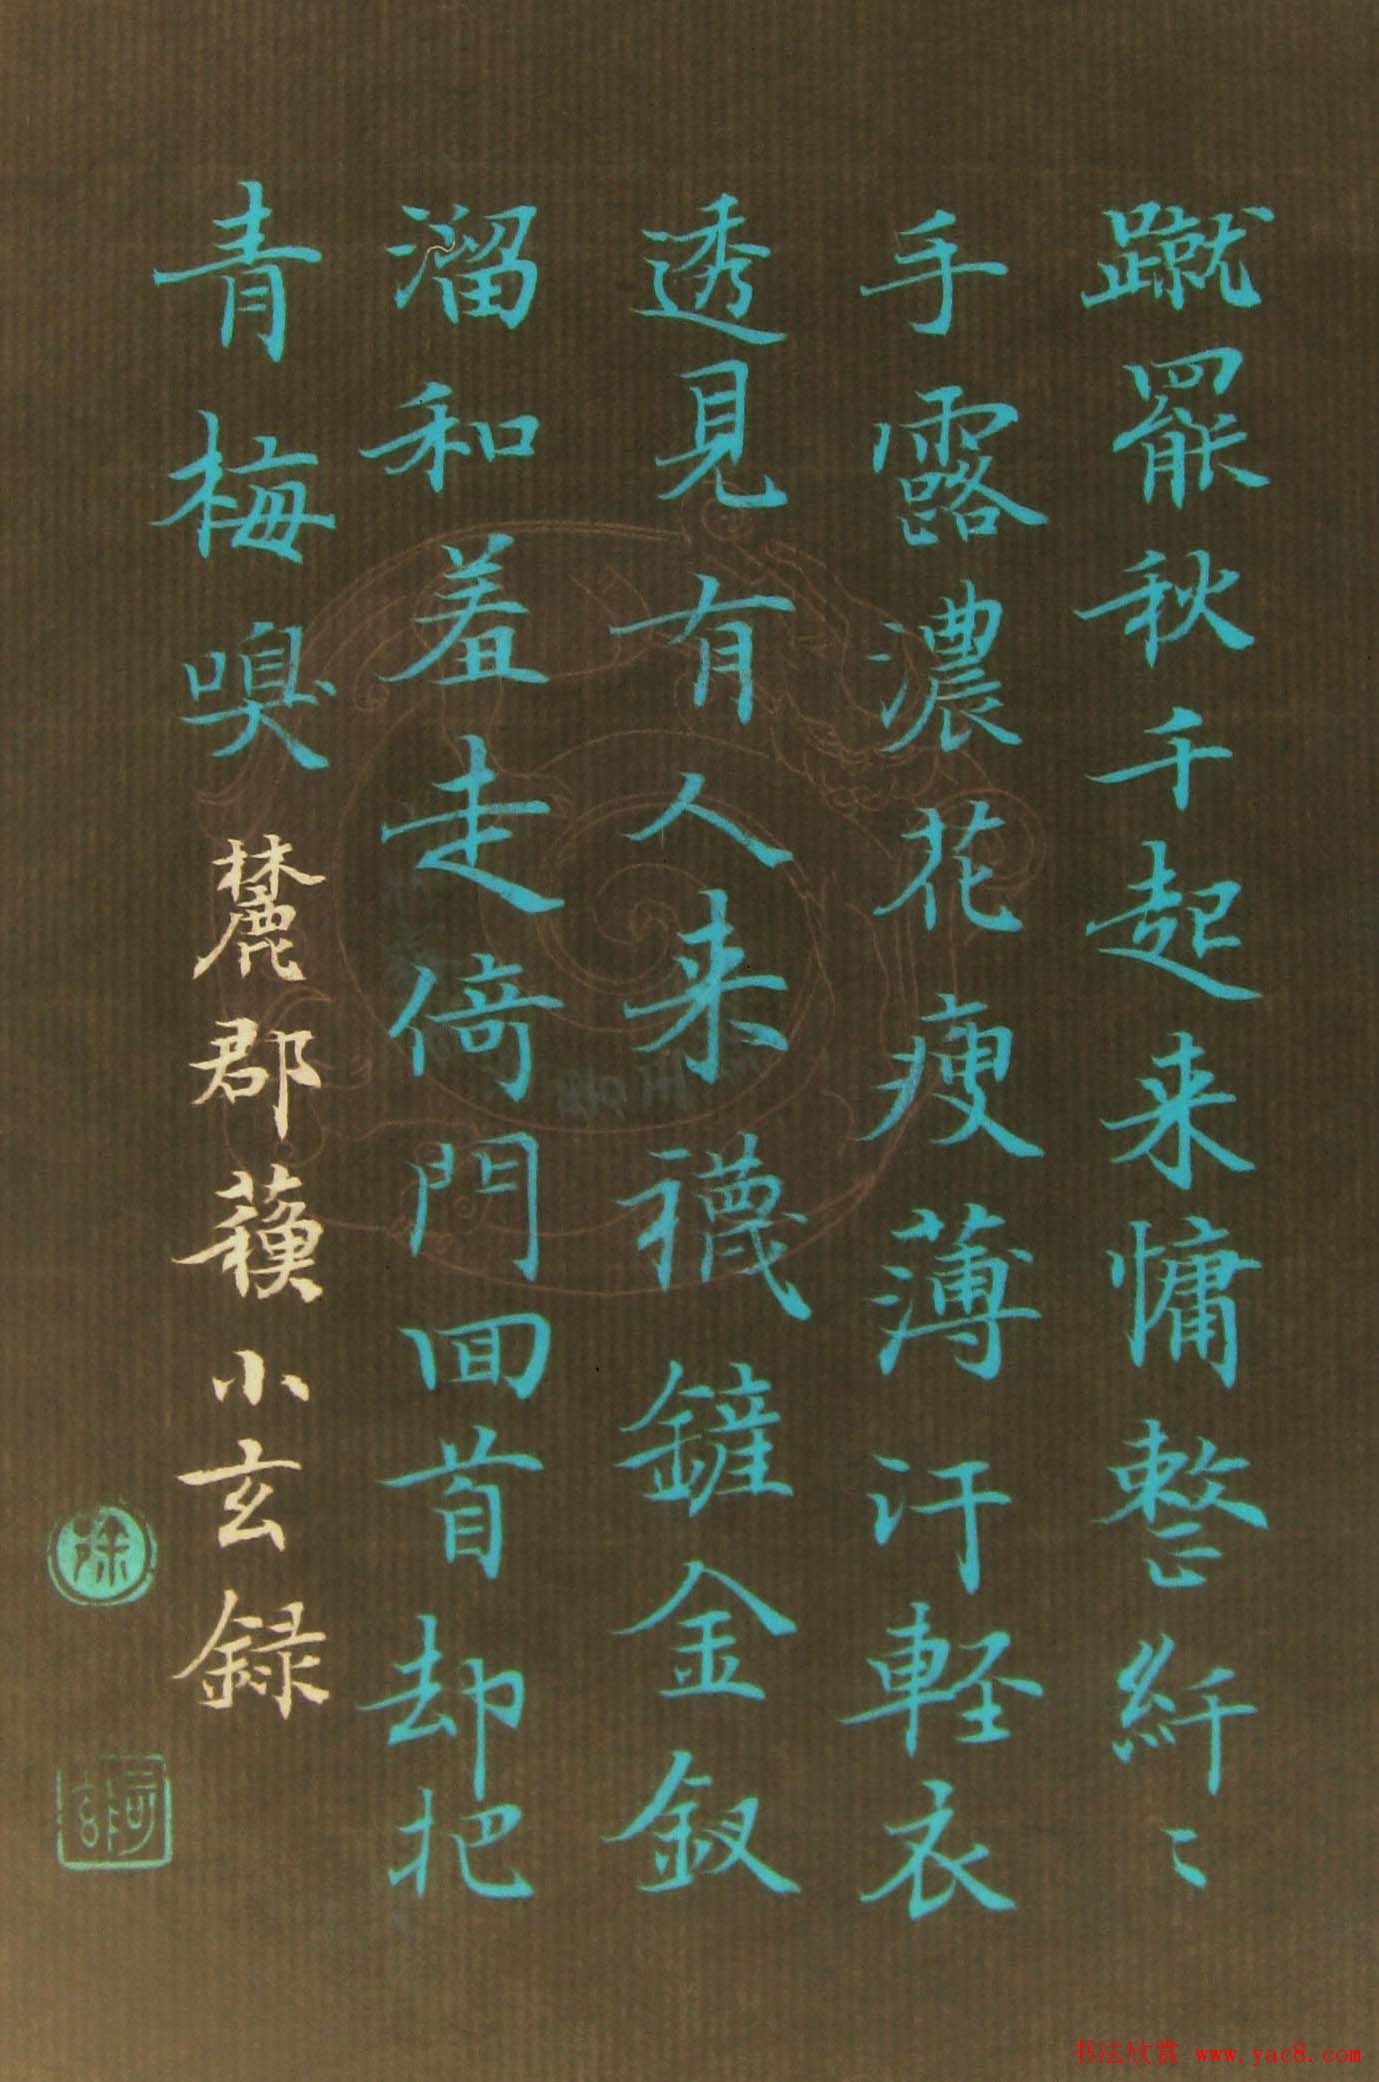 蹴罷秋千起来慵整纤〻
手露濃花瘦薄汗軽衣
透見有人来襪鏟金釵
溜和羞走倚門回首却把
青梅嗅
麓郡蘓小玄録
书法欣赏 www.yac8.com